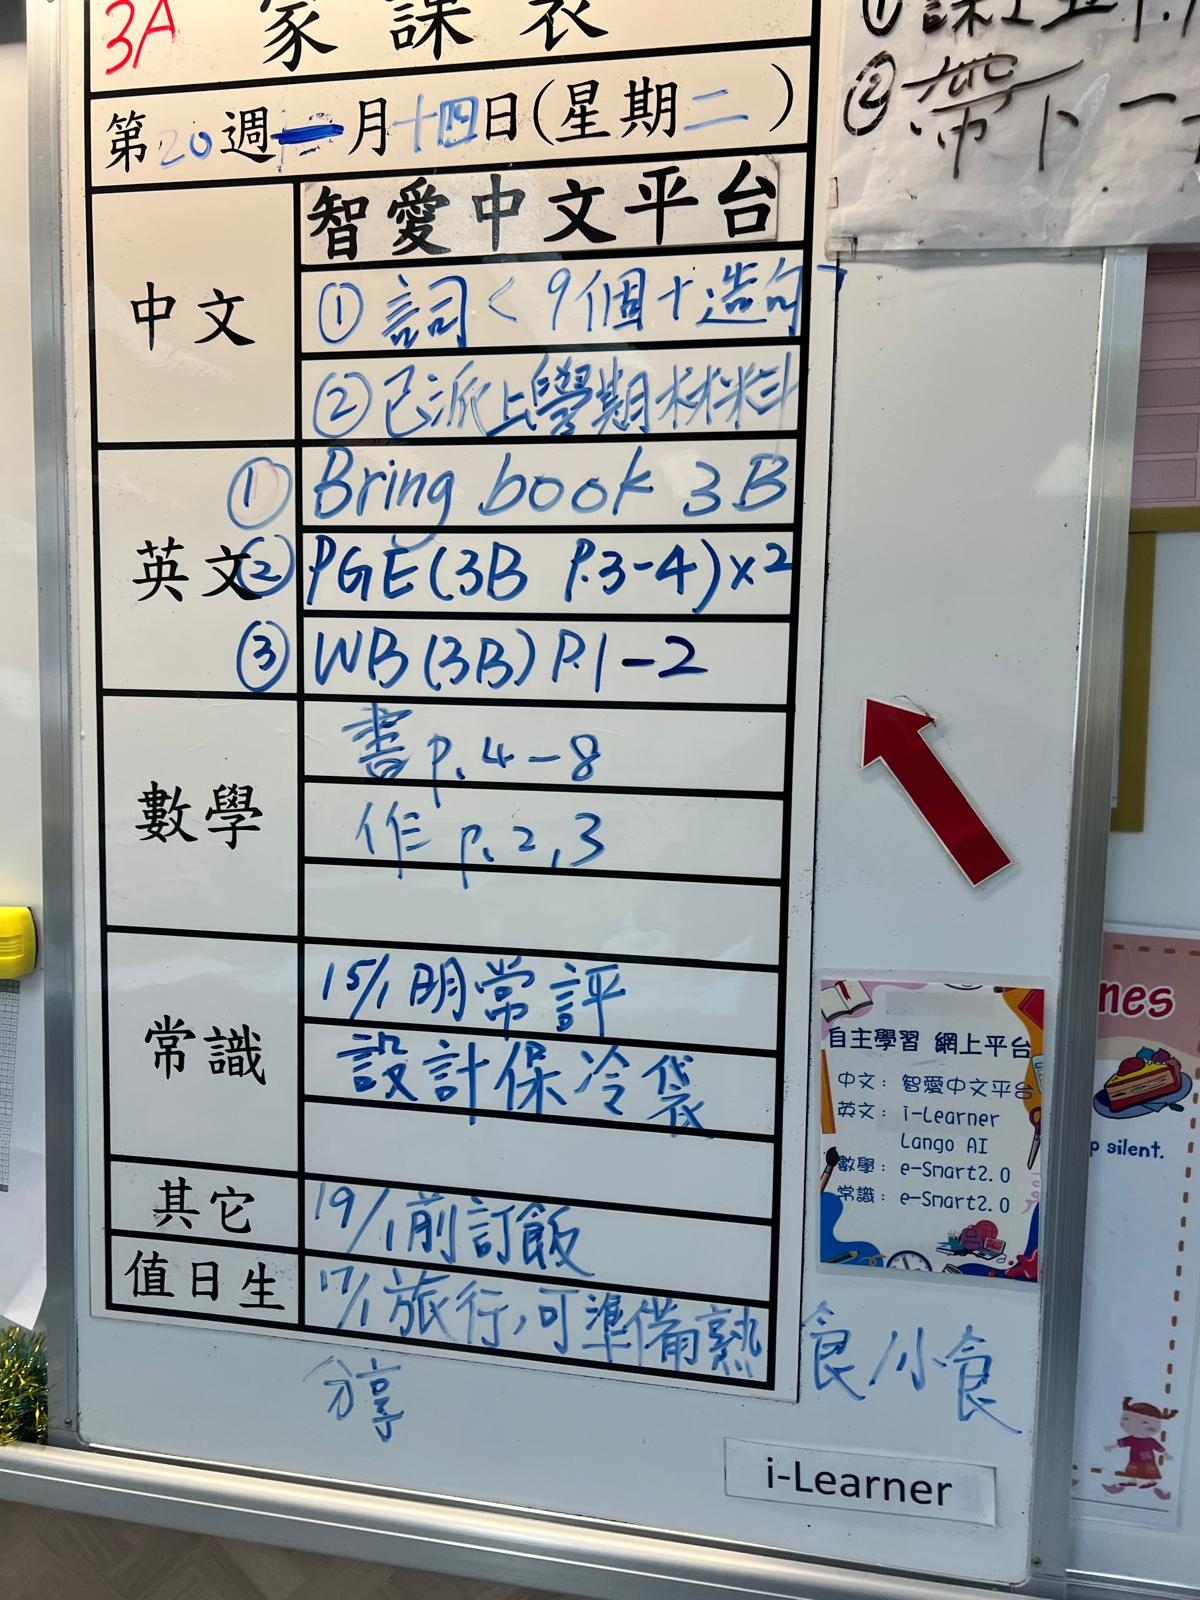 3A 家課表
第20週一月十四日(星期二)
中文
智愛中文平台
① 詞<9個+造句>
② 已派上學期材料
英文
① Bring book 3B
② PGE(3B P.3-4)x2
③ WB(3B)P.1-2
數學
書 P.4-8
作 P.2,3
常識
15/1明常評
設計保冷袋
其它
19/1前訂飯
值日生
17/1旅行,可準備熟食/小食
分享
i-Learner
②帶
自主學習 網上平台
中文：智愛中文平台
英文：i-Learner
Lango AI
數學：e-Smart2.0
常識：e-Smart2.0
nes
p silent.